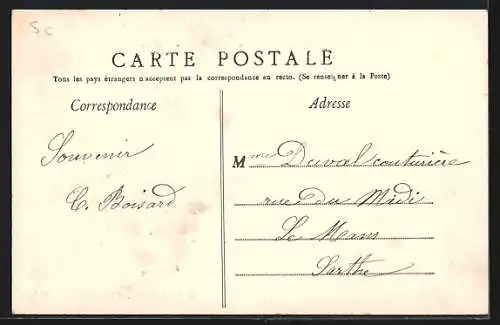 5c
CARTE POSTALE
Tous les pays étrangers n'acceptent pas la correspondance au recto. (Se renseigner à la Poste)
Correspondance
Adresse
Souvenir
C. Boisard
Mme Duval couturière
rue du Midi
Le Mans
Sarthe